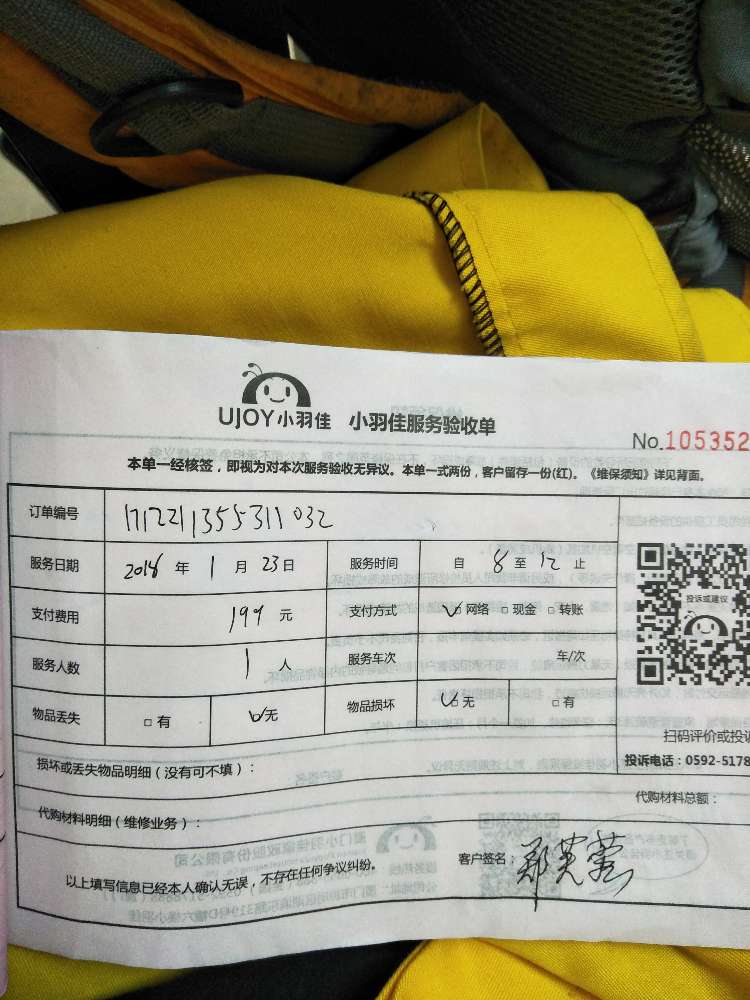 UJOY小羽佳 小羽佳服务验收单
No.105352
本单一经核签，即视为对本次服务验收无异议。本单一式两份，客户留存一份(红)。《维保须知》详见背面。
订单编号 171221135531032
服务日期 2018 年 1 月 23 日 服务时间 自 8 至 12 止
投诉或建议
支付费用 199 元 支付方式 ✓ 网络 □ 现金 □ 转账
服务人数 1 人 服务车次 车/次
物品丢失 □ 有 ✓无 物品损坏 ✓无 □ 有
扫码评价或投诉
损坏或丢失物品明细（没有可不填）：
投诉电话：0592-5178
代购材料明细（维修业务）：
代购材料总额：
以上填写信息已经本人确认无误，不存在任何争议纠纷。 客户签名：